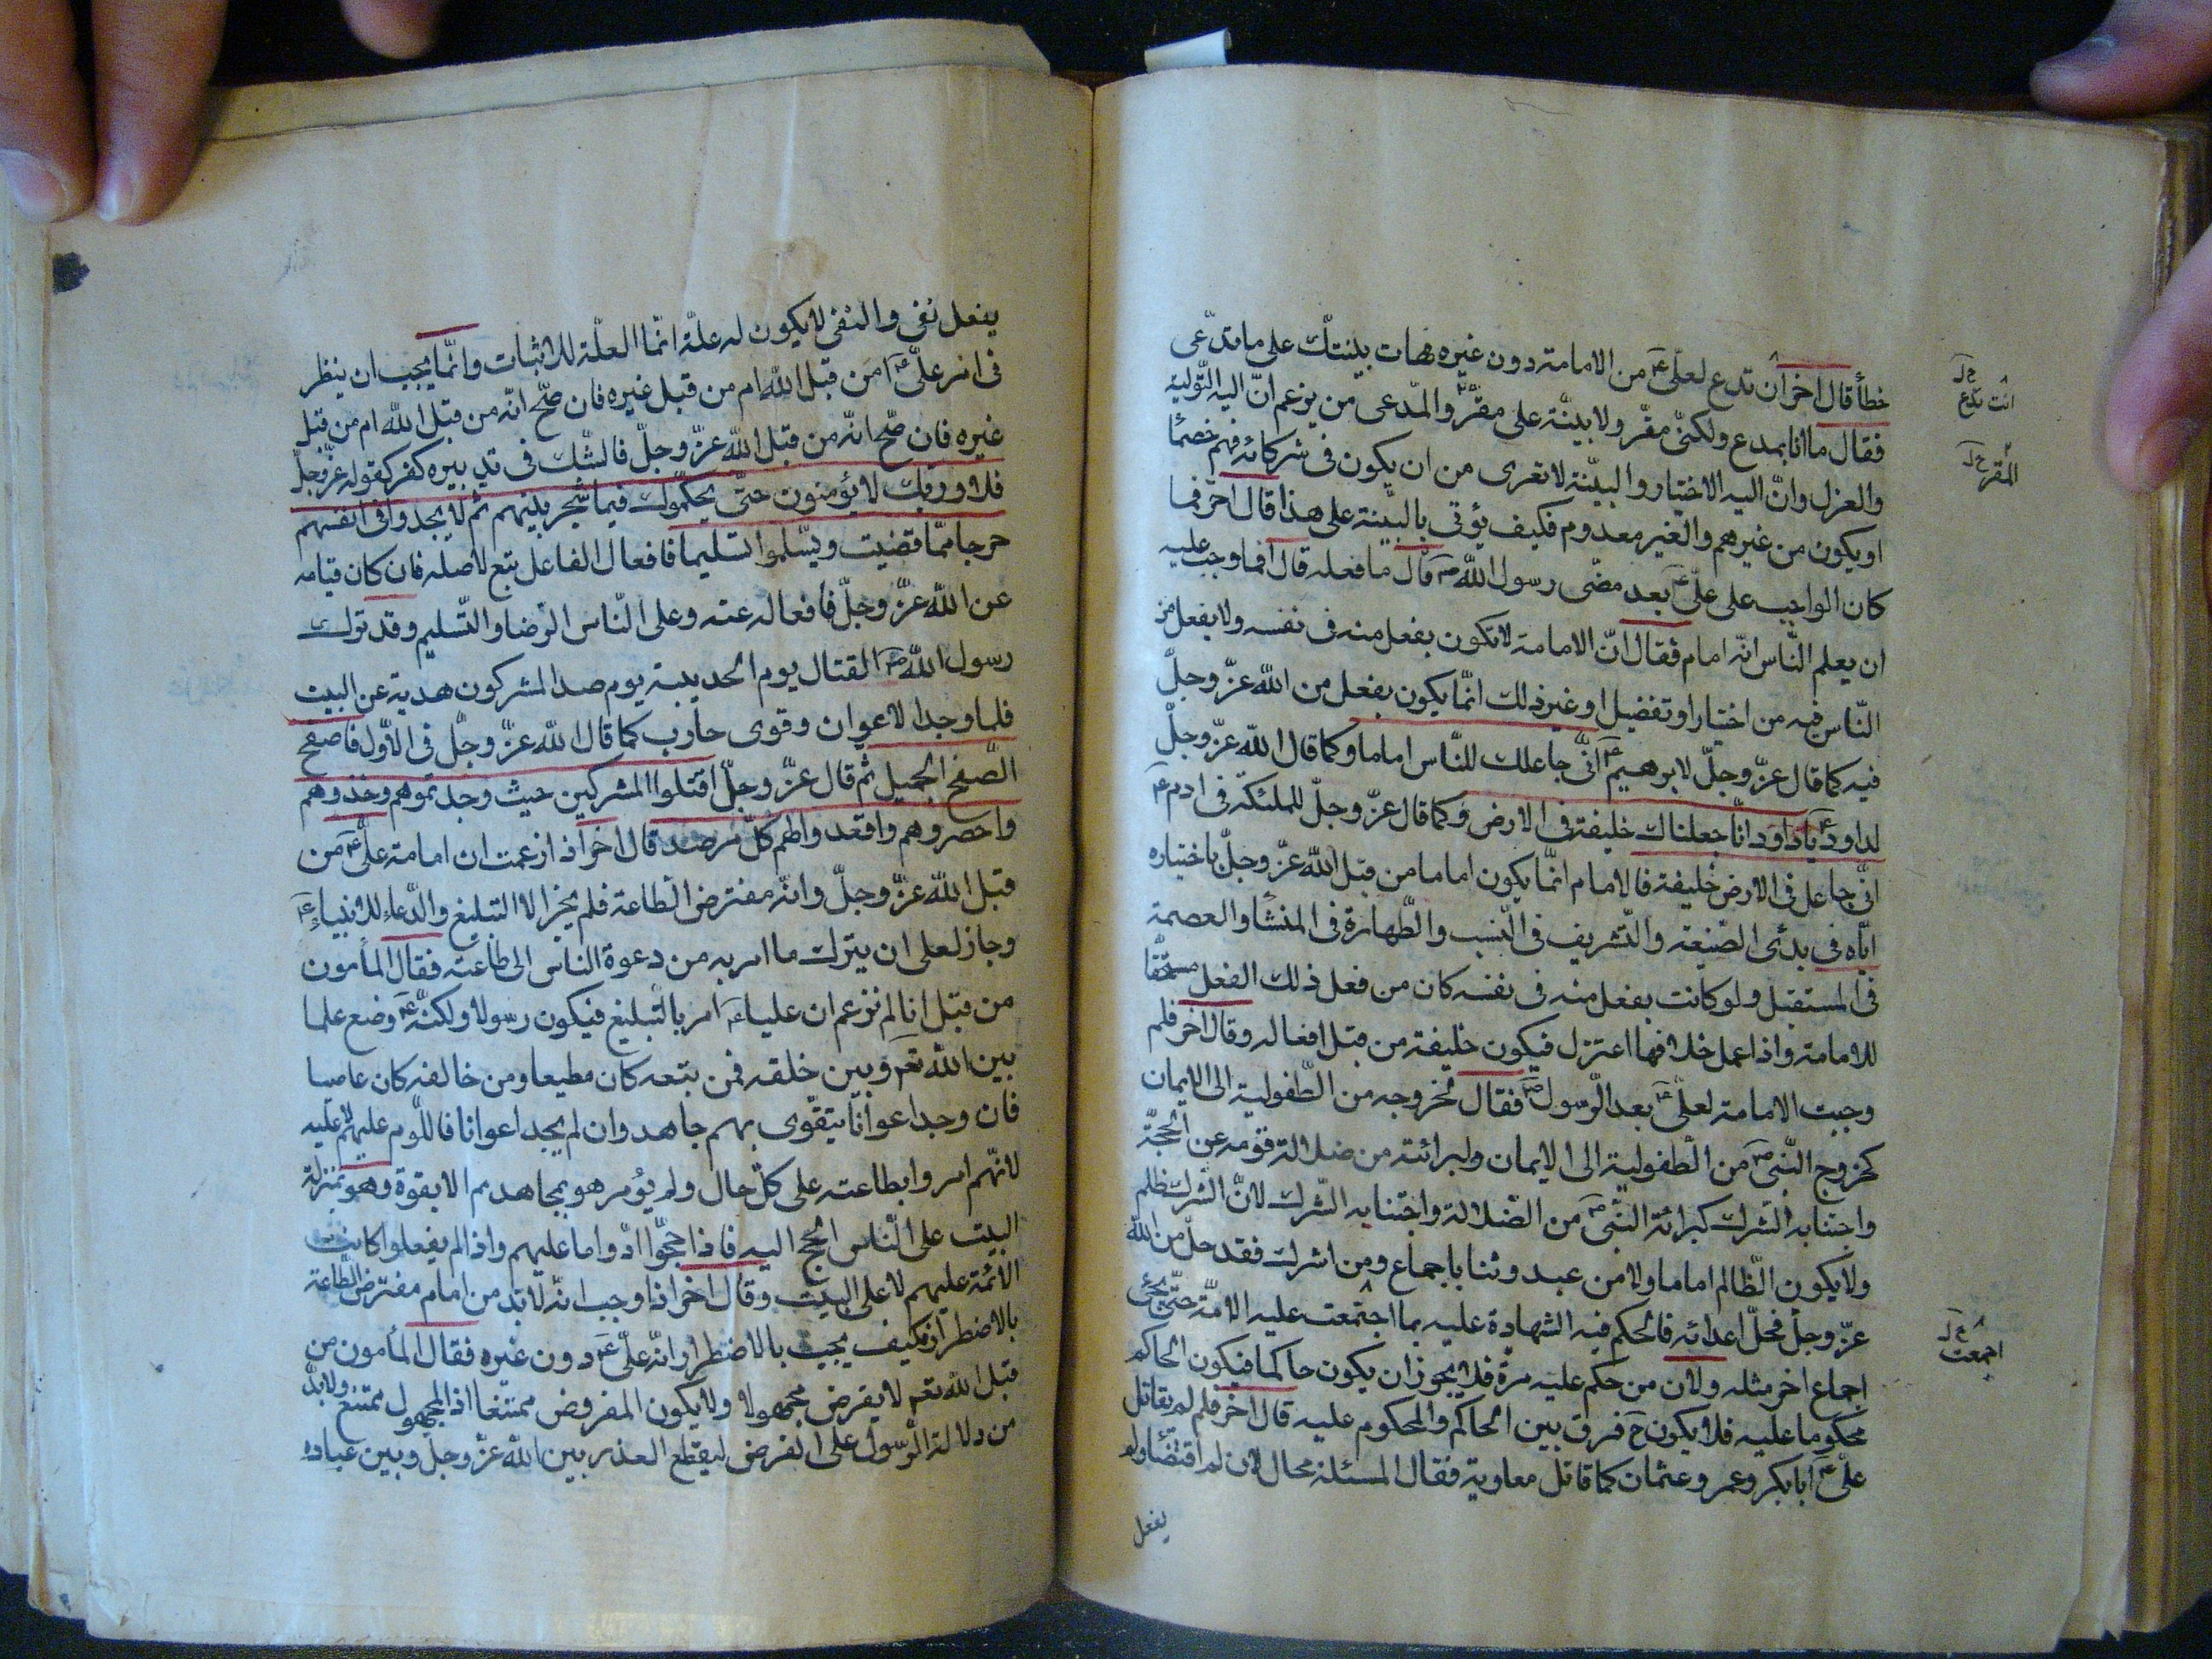 خطأ قال اخر ان تدع لعلى ع من الامامة دون غيره فهات بينتك على ما تدّعى
فقال ما انا بمدع ولكنّى مقرّ ولا بينّة على مقرّ والمدّعى من يزعم انّ اليه التّولية
والعزل وانّ اليه الاختيار والبيّنة لا تعرى من ان يكون فى شركائه فهم خصمأ
او يكون من غيرهم والغير معدوم فكيف يؤتى بالبيّنة على هذا قال اخر فما
كان الواجب على علىّ ع بعد مضّى رسول اللّه ص قال ما فعله قال افما وجب عليه
ان يعلم النّاس انّه امام فقال انّ الامامة لا تكون بفعل منه فى نفسه ولا بفعل من
النّاس فيه من اختيار او تفضيل او غير ذلك انّما يكون بفعل من اللّه عزّ وجلّ
فيه كما قال عزّ وجلّ لابرهيم ع انّى جاعلك للنّاس اماما وكما قال اللّه عزّ وجلّ
لداود ع يا داود انّا جعلناك خليفة فى الارض وكما قال عزّ وجلّ للملئكة فى ادم ع
انّى جاعل فى الارض خليفة فالامام انّما يكون اماما من قبل اللّه عزّ وجلّ باختياره
ايّاه فى بدئ الصّنيعة والتّشريف فى النّسب والطّهارة فى المنشأ والعصمة
فى المستقبل ولو كانت بفعل منه فى نفسه كان من فعل ذلك الفعل مستحقّا
للامامة واذا عمل خلافها اعتزل فيكون خليفة من قبل افعاله وقال اخر فلم
وجبت الامامة لعلىّ ع بعد الرّسول ص فقال لخروجه من الطّفولية الى الايمان
كخروج النّبى ص من الطّفولية الى الايمان ولبرائته من ضلالة قومه عن الحجّة
واجتنابه الشّرك كبرائة النّبى ص من الضّلالة واجتنابه الشّرك لانّ الشّرك ظلم
ولا يكون الظّالم اماما ولا من عبد وثنا باجماع ومن اشرك فقد حلّ من اللّه
عزّ وجلّ محلّ اعدائه فالحكم فيه الشهادة عليه بما اجتمعت عليه الامّة حتّى يجئ
اجماع اخر مثله ولان من حكم عليه مرة فلا يجوز ان يكون حاكما فيكون الحاكم
محكوما عليه فلا يكون ح فرق بين الحاكم والمحكوم عليه قال اخر فلم لم يقاتل
علىّ ع ابا بكر وعمر وعثمان كما قاتل معاوية فقال المسئلة محال لان لم اقتضأ ولم
يفعل
انت تدع
خ ل
المقر خ ل
خ ل
اجمعت
يفعل نفى والنفى لا يكون له علّة انّما العلّة للاثبات وانّما يجب ان ينظر
فى امر علىّ ع امن قبل اللّه ام من قبل غيره فان صحّ انّه من قبل اللّه ام من قبل
غيره فان صحّ انّه من قبل اللّه عزّ وجلّ فالشّك فى تدبيره كفر كقوله عزّ وجلّ
فلا وربك لا يؤمنون حتّى يحكّموك فيما شجر بينهم ثم لا يجدوا فى انفسهم
حرجا ممّا قضيت ويسلّموا تسليما فافعال الفاعل تبع لاصله فان كان قيامه
عن اللّه عزّ وجلّ فافعاله عنه وعلى النّاس الرّضا والتّسليم وقد ترك
رسول اللّه ص القتال يوم الحديبية يوم صد المشركون هديه عن البيت
فلما وجد الاعوان وقوى حارب كما قال اللّه عزّ وجلّ فى الاوّل فاصفح
الصّفح الجميل ثم قال عزّ وجلّ اقتلوا المشركين حيث وجدتموهم وخذوهم
واحصروهم واقعدوا لهم كلّ مرصد قال اخر اذا زعمت ان امامة علىّ ع من
قبل اللّه عزّ وجلّ وانّه مفترض الطّاعة فلم يجز الا التبليغ والدّعاء للانبياء ع
وجاز لعلى ان يترك ما امر به من دعوة الناس الى طاعته فقال المأمون
من قبل انا لم نزعم ان عليا ع امر بالتّبليغ فيكون رسولا ولكنّه ع وضع علما
بين اللّه تعم وبين خلقه فمن تبعه كان مطيعا ومن خالفه كان عاصيا
فان وجد اعوانا يتقوّى بهم جاهد وان لم يجد اعوانا فاللّوم عليهم لا عليه
لانّهم امروا بطاعته على كلّ حال ولم يؤمر هو بمجاهدتهم الا بقوة وهو بمنزلة
البيت على النّاس الحج اليه فاذا حجّوا ادّوا ما عليهم واذا لم يفعلوا كانت
الائمة عليهم لا على البيت وقال اخر اذا وجب انّه لا بد من امام مفترض الطّاعة
بالاضطرار فكيف يجب بالاضطرار انّه علىّ ع دون غيره فقال المأمون من
قبل اللّه تعم لا يفرض مجهولا ولا يكون المفروض ممتنعا اذ المجهول ممتنع ولا بدّ
من دلالة الرّسول على الفرض ليقطع العذر بين اللّه عزّ وجلّ وبين عباده